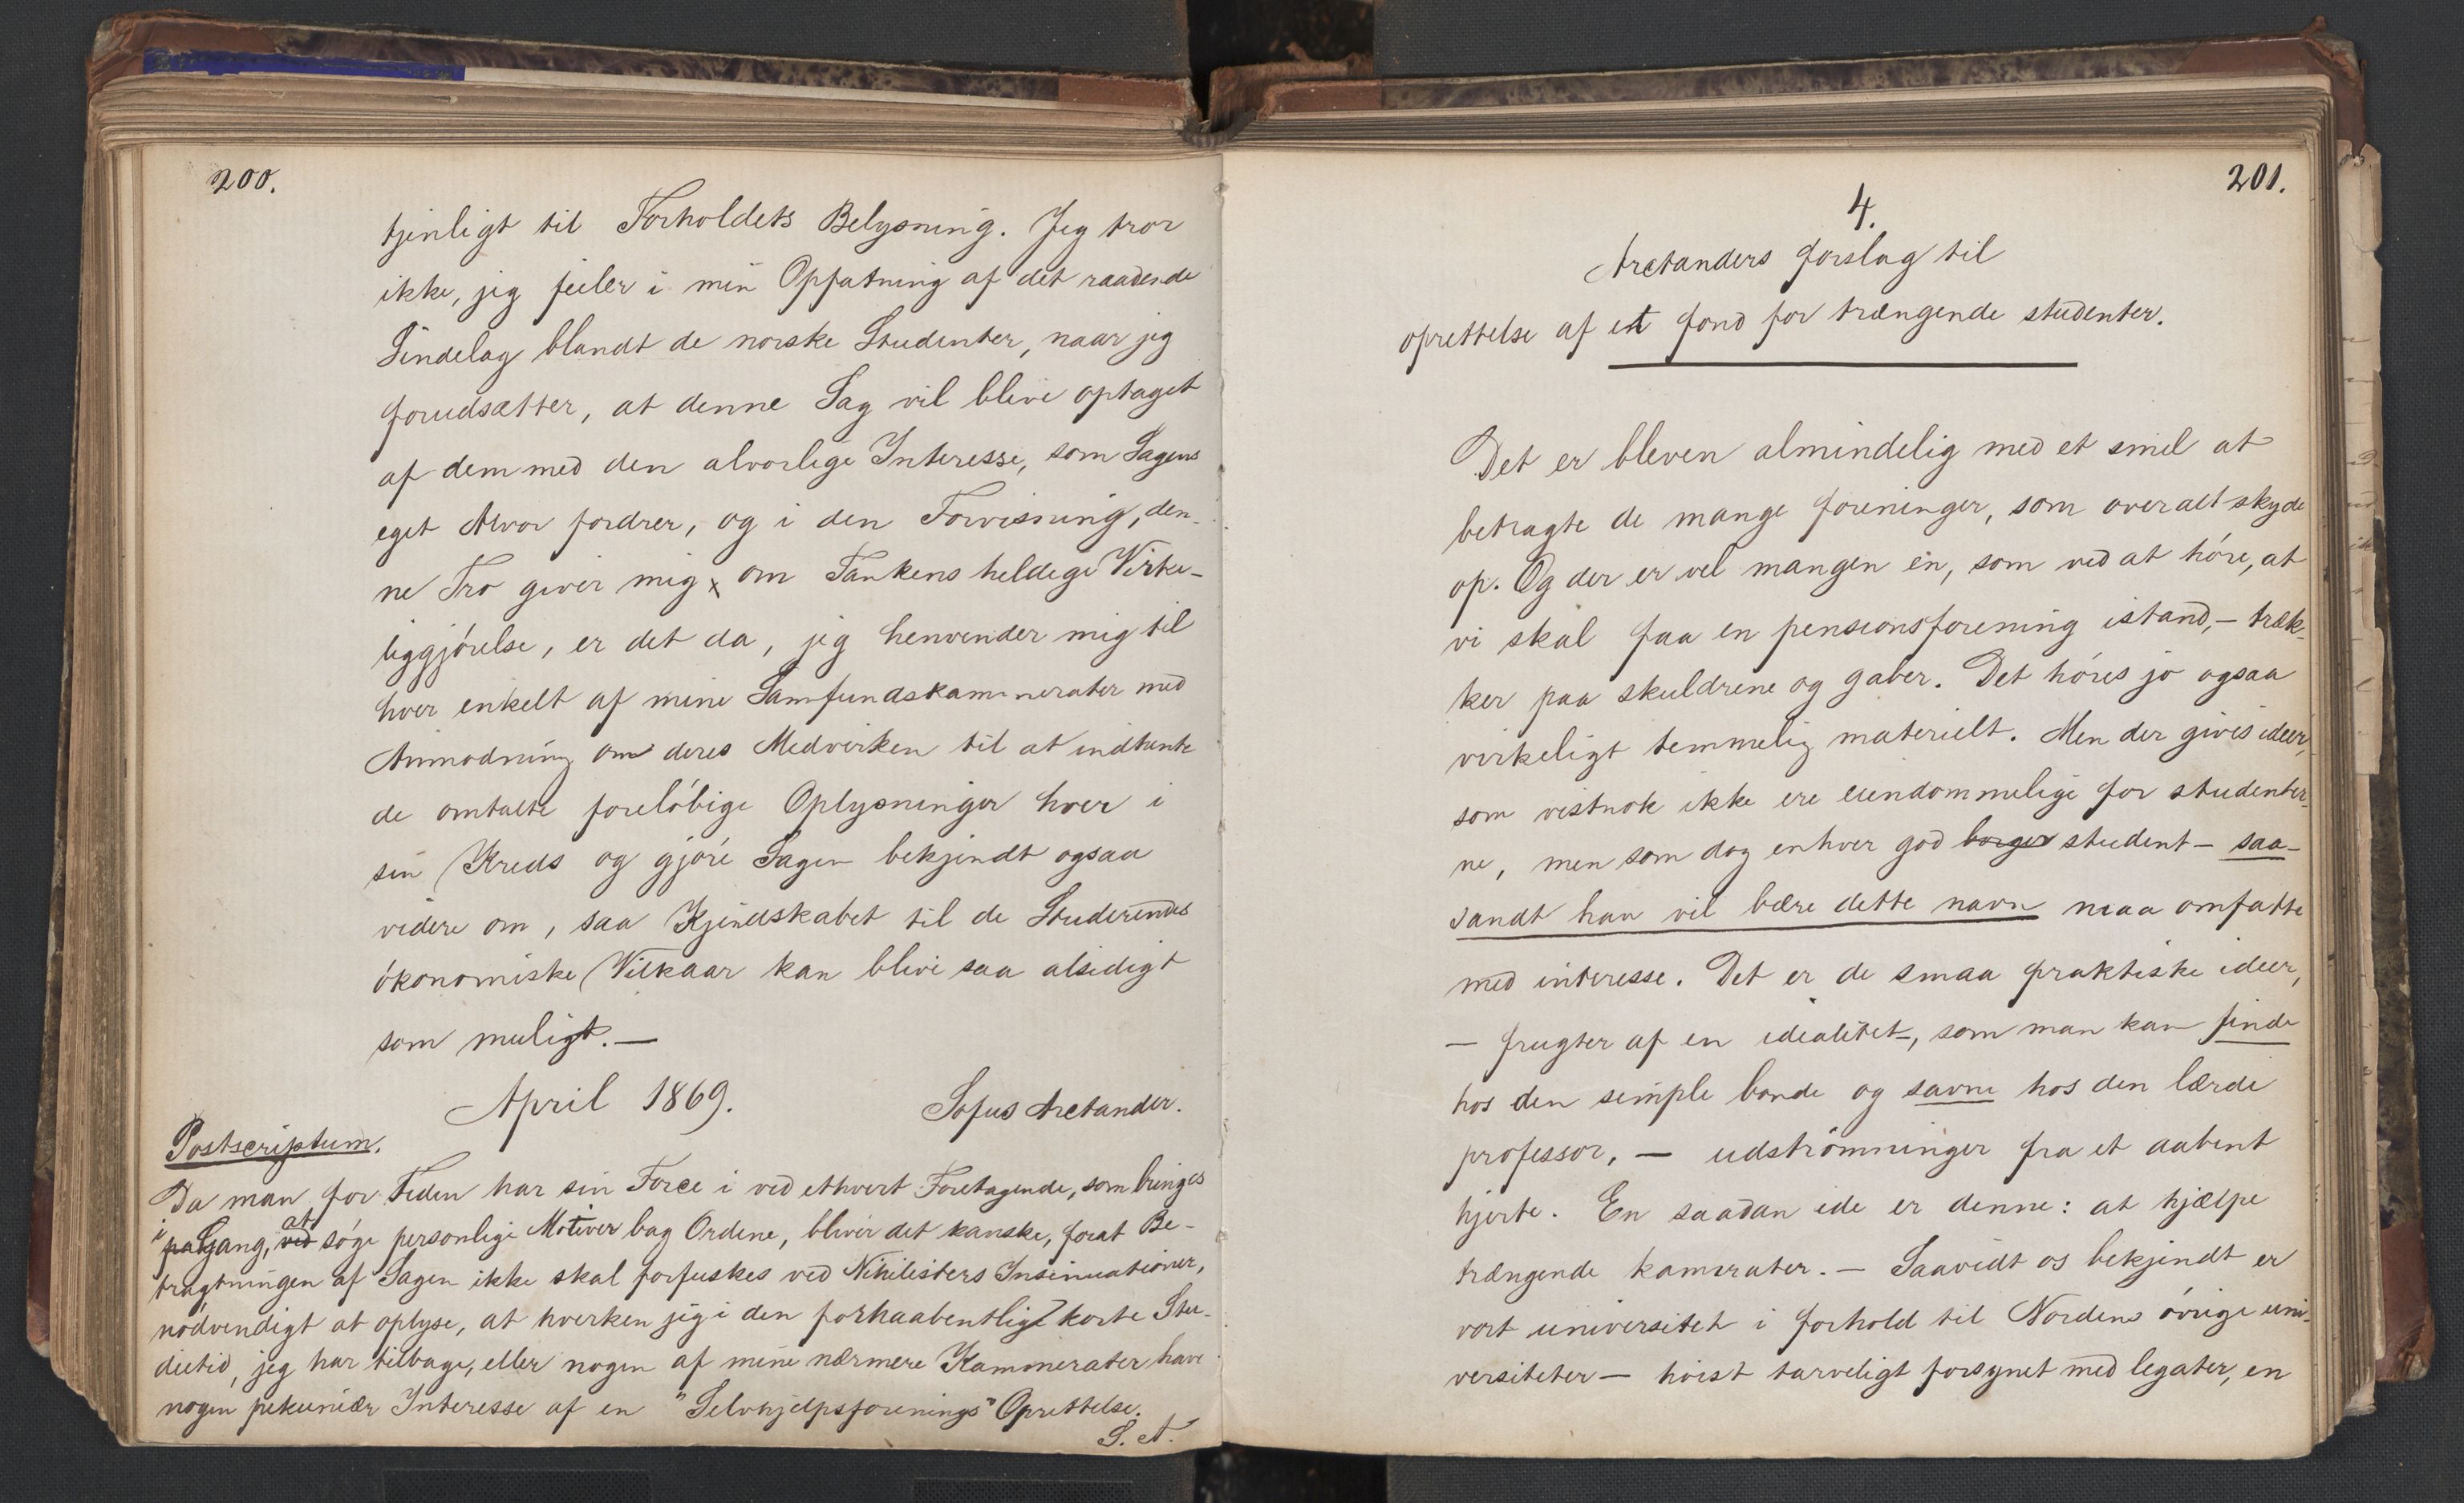 200.
tjenligt til Forholdets Belysning. Jeg tror
ikke, jeg feiler i min Opfatning af det raadende
Sindelag blandt de norske Studenter, naar jeg
forudsætter, at denne Sag vil blive optaget
af dem med den alvorlige Interesse, som Sagens
eget Alvor fordrer, og i den Forvisning, den-
ne Tro giver mig x om Tankens heldige Virke-
liggjörelse, er det da, jeg henvender mig til
hver enkelt af mine Samfundskammerater med
Anmodning om deres Medvirken til at indhente
de omtalte foreløbige Oplysninger hver i
sin Kreds og gjöre Sagen bekjendt ogsaa
videre om, saa Kjendskabet til de Studerendes
ökonomiske Vilkaar kan blive saa alsidigt
som muligt. —
April 1869. Sofus Arctander.
Postscriptum.
Da man for Tiden har sin Force i ved ethvert Foretagende, som bringes
i paa Gang, ved at söge personlige Motiver bag Ordene, bliver det kanske, forat Be-
tragtningen af Sagen ikke skal forfuskes ved Nihilisters Insinuationer,
nödvendigt at oplyse, at hverken jeg i den forhaabentlig korte Stu-
dietid, jeg har tilbage, eller nogen af mine nærmere Kammerater have
nogen pekuniær Interesse af en "Selvhjelpsforenings" Oprettelse.
S. A.
201.
4.
Arctanders forslag til
oprettelse af et fond for trængende studenter.
Det er bleven almindelig med et smil at
betragte de mange foreninger, som overalt skyde
op. Og der er vel mangen en, som ved at höre, at
vi skal faa en pensionsforening istand, — træk-
ker paa skuldrene og gaber. Det höres jo ogsaa
virkeligt temmelig materielt. Men der gives ideer,
som vistnok ikke ere eiendommelige for studenter-
ne, men som dog enhver god borger student — saa-
sandt han vil bære dette navn maa omfatte
med interesse. Det er de smaa praktiske ideer,
— frugter af en idealitet —, som man kan finde
hos den simple bonde og savne hos den lærde
professor, — udströmninger fra et aabent
hjerte. En saadan ide er denne: at hjælpe
trængende kamerater. — Saavidt os bekjendt er
vort universitet i forhold til Nordens övrige uni-
versiteter — höist tarveligt forsynet med legater, en